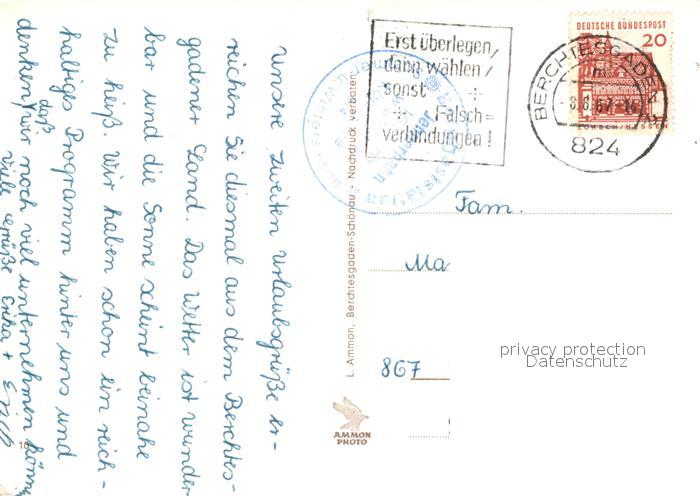 Unsere zweiten Urlaubsgrüße er-
reichen Sie diesmal aus dem Berchtes-
gadener Land. Das Wetter ist wunder
bar und die Sonne scheint beinahe
zu heiß. Wir haben schon ein reich-
habiges Programm hinter uns und
denken, daß wir noch viel unternehmen können
Viele Grüße Erika + Erich
Erst überlegen,
dann wählen,
sonst
Falsch=
verbindungen!
DEUTSCHE BUNDESPOST
20
BERCHTESGADEN
m
-8.8.67-
824
Jennerbahn
L. Ammon, Berchtesgaden-Schönau · Nachdruck verboten
Fam.
Ma
867
AMMON
PHOTO
privacy protection
Datenschutz